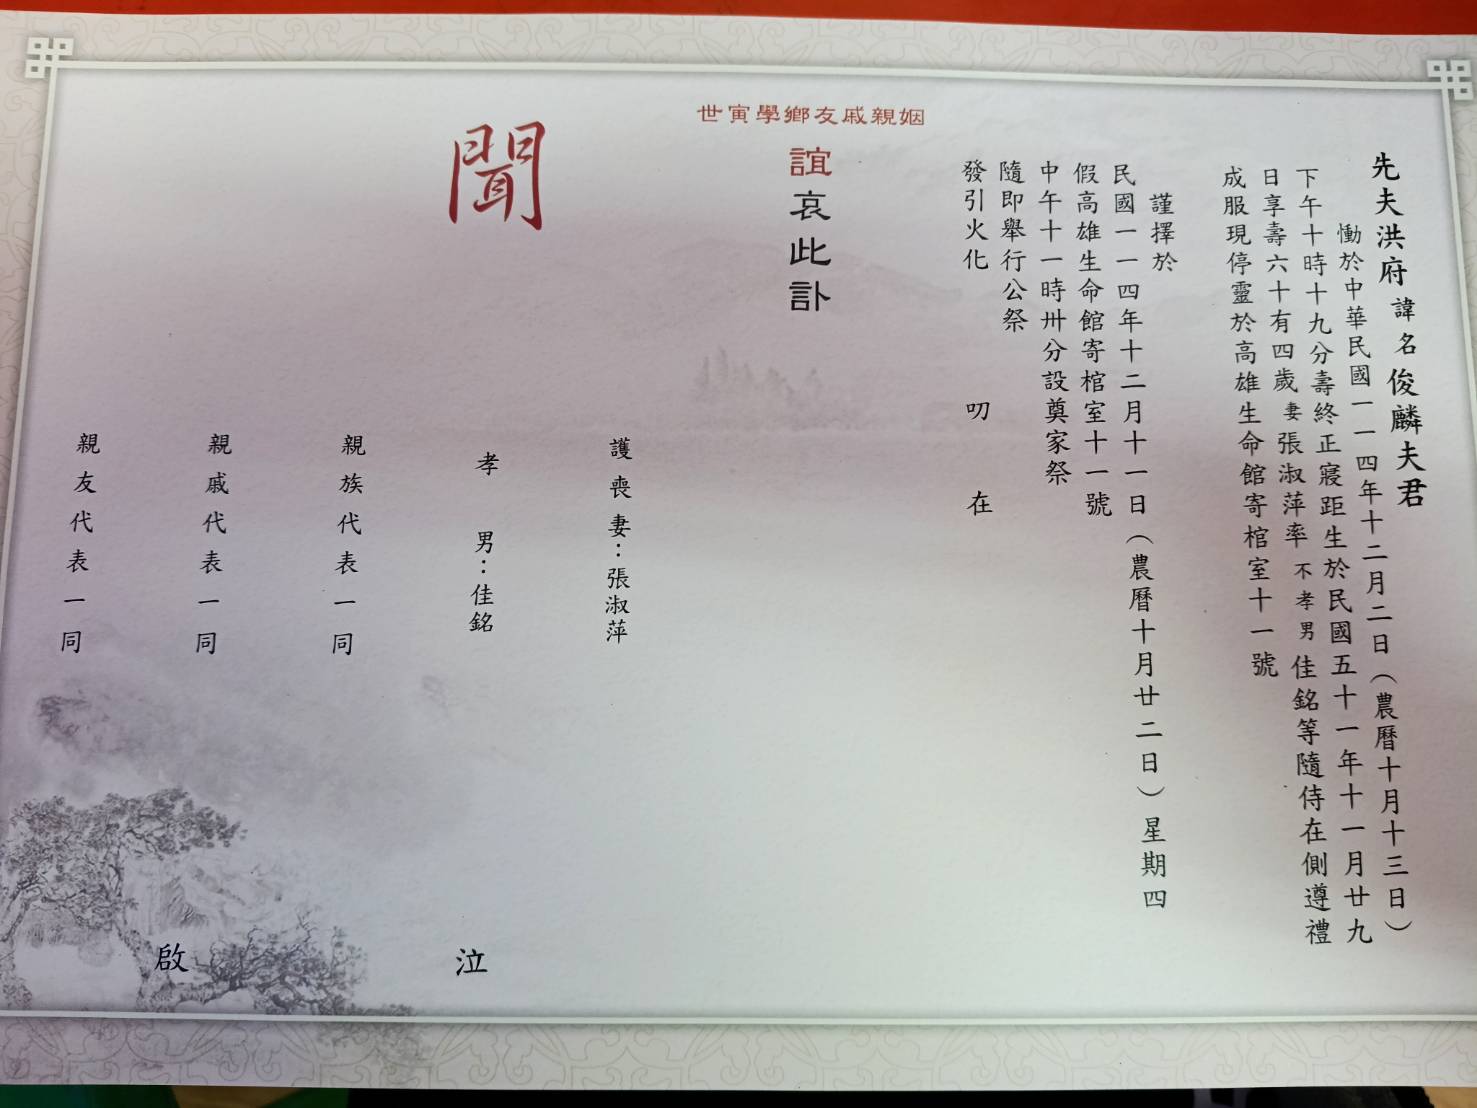 先夫洪府諱名俊麟夫君
慟於中華民國一一四年十二月二日（農曆十月十三日）
下午十時十九分壽終正寢距生於民國五十一年十一月廿九
日享壽六十有四歲妻張淑萍率不孝男佳銘等隨侍在側遵禮
成服現停靈於高雄生命館寄棺室十一號
謹擇於
民國一一四年十二月十一日（農曆十月廿二日）星期四
假高雄生命館寄棺室十一號
中午十一時卅分設奠家祭
隨即舉行公祭
發引火化 叨在
姻親戚友鄉學寅世
誼哀此訃
聞
護喪妻：張淑萍
孝男：佳銘
泣
親族代表一同
親戚代表一同
親友代表一同
啟